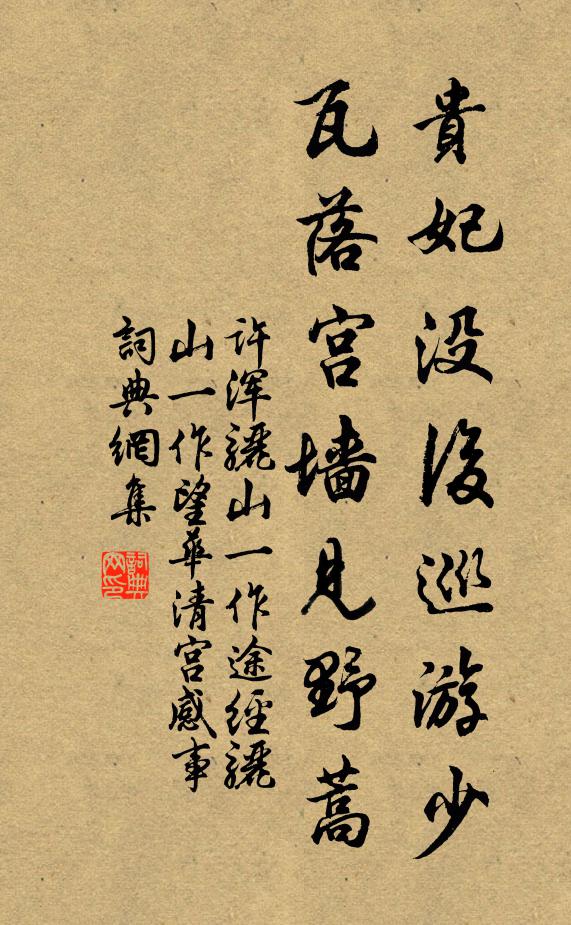 貴妃没後巡游少
瓦落宫墙見野蒿
許渾驪山一作途經驪
山一作望華清宫感事
詞典網集
詞典网印